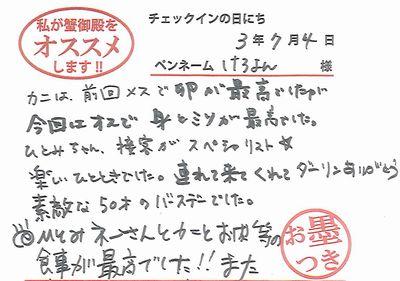 私が蟹御殿を
オススメ
します!!
チェックインの日にち
3年7月4日
ペンネーム けろよん 様
カニは、前回メスで卵が最高でしたが
今回はオスで身とミソが最高でした。
ひとみちゃん、接客がスペシャリスト☆
楽しいひとときでした。連れて来てくれてダーリンありがとう
素敵な50才のバースデーでした。
ひとみネーさんとカニとお肉等の
食事が最高でした!!また
お墨つき